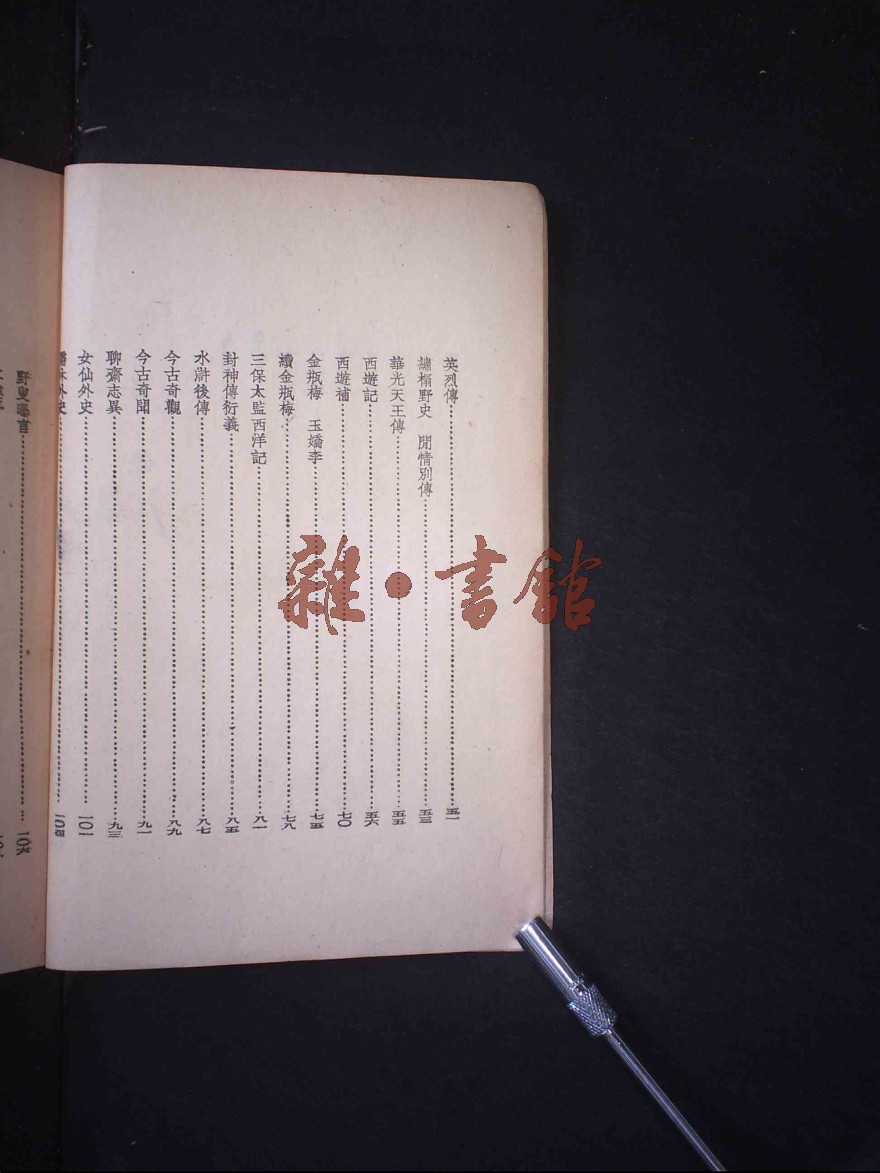 英烈傳……五一
繡榻野史　閒情別傳……五三
華光天王傳……五五
西遊記……五六
西遊補……七〇
金瓶梅　玉嬌李……七五
續金瓶梅……七八
三保太監西洋記……八一
封神傳衍義……八五
水滸後傳……八七
今古奇觀……八九
今古奇聞……九一
聊齋志異……九三
女仙外史……一〇一
儒林外史……一〇四
野叟曝言
雜·書館